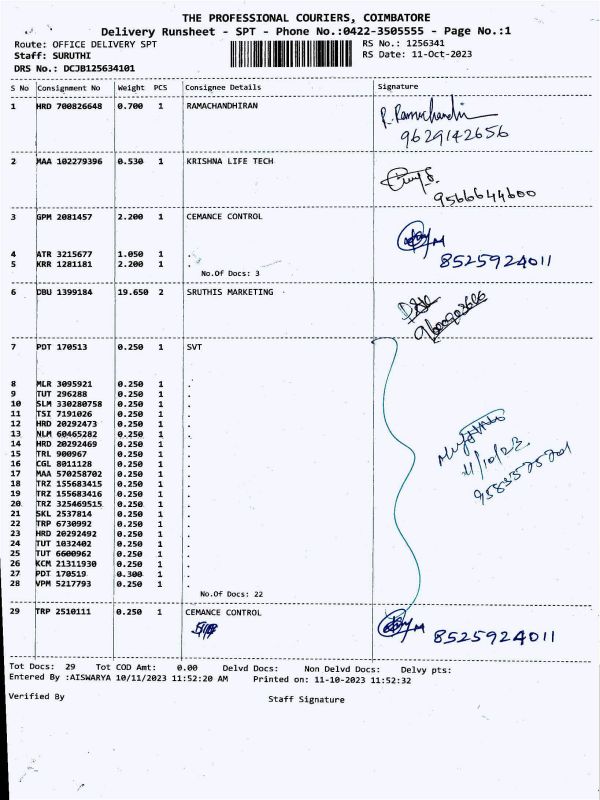 THE PROFESSIONAL COURIERS, COIMBATORE
Delivery Runsheet - SPT - Phone No.:0422-3505555 - Page No.:1
Route: OFFICE DELIVERY SPT RS No.: 1256341
Staff: SURUTHI RS Date: 11-Oct-2023
DRS No.: DCJB125634101
S No Consignment No Weight PCS Consignee Details Signature
1 HRD 700826648 0.700 1 RAMACHANDHIRAN R. Ramachandiran
9629142656
2 MAA 102279396 0.530 1 KRISHNA LIFE TECH
9566644600
3 GPM 2081457 2.200 1 CEMANCE CONTROL
4 ATR 3215677 1.050 1 .
5 KRR 1281181 2.200 1 . 8525924011
No.Of Docs: 3
6 DBU 1399184 19.650 2 SRUTHIS MARKETING
7 PDT 170513 0.250 1 SVT
8 MLR 3095921 0.250 1 .
9 TUT 296288 0.250 1 .
10 SLM 330280758 0.250 1 .
11 TSI 7191026 0.250 1 .
12 HRD 20292473 0.250 1 .
13 NLM 60465282 0.250 1 .
14 HRD 20292469 0.250 1 .
15 TRL 900967 0.250 1 .
16 CGL 8011128 0.250 1 .
17 MAA 570258702 0.250 1 .
18 TRZ 155683415 0.250 1 .
19 TRZ 155683416 0.250 1 .
20 TRZ 325469515 0.250 1 .
21 SKL 2537814 0.250 1 .
22 TRP 6730992 0.250 1 .
23 HRD 20292492 0.250 1 .
24 TUT 1032402 0.250 1 .
25 TUT 6600962 0.250 1 .
26 KCM 21311930 0.250 1 .
27 PDT 170519 0.300 1 .
28 VPM 5217793 0.250 1 .
11/10/23
No.Of Docs: 22
29 TRP 2510111 0.250 1 CEMANCE CONTROL
8525924011
Tot Docs: 29 Tot COD Amt: 0.00 Delvd Docs: Non Delvd Docs: Delvy pts:
Entered By :AISWARYA 10/11/2023 11:52:20 AM Printed on: 11-10-2023 11:52:32
Verified By Staff Signature